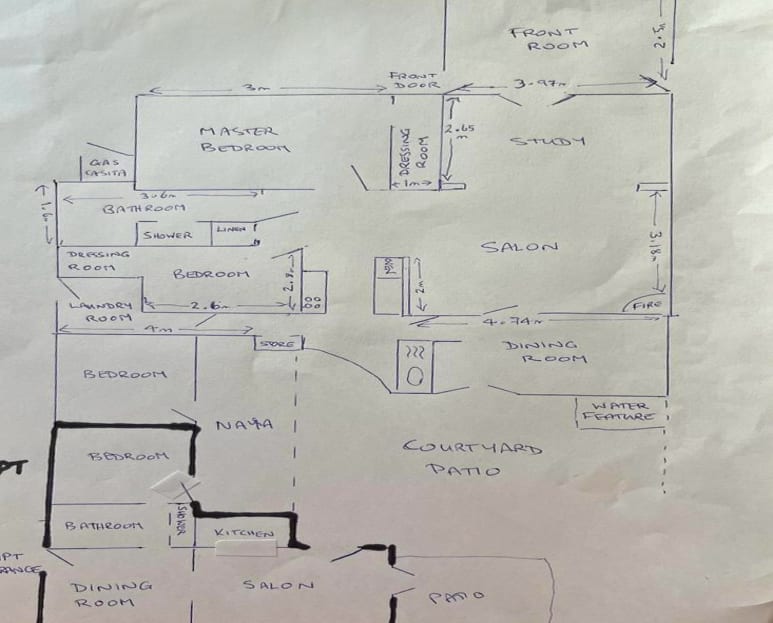 FRONT
ROOM
2.5m
FRONT
DOOR
3m
3.97m
MASTER
BEDROOM
DRESSING
ROOM
2.65
m
STUDY
GAS
CASITA
1m
3.6m
BATHROOM
1.6m
SHOWER
LINEN
SALON
3.18m
DRESSING
ROOM
BEDROOM
2.6m
2m
FIRE
LAUNDRY
ROOM
4m
4.74m
STORE
DINING
ROOM
BEDROOM
WATER
FEATURE
NAYA
COURTYARD
PATIO
BEDROOM
PT
BATHROOM
SHOWER
KITCHEN
DINING
ROOM
SALON
PATIO